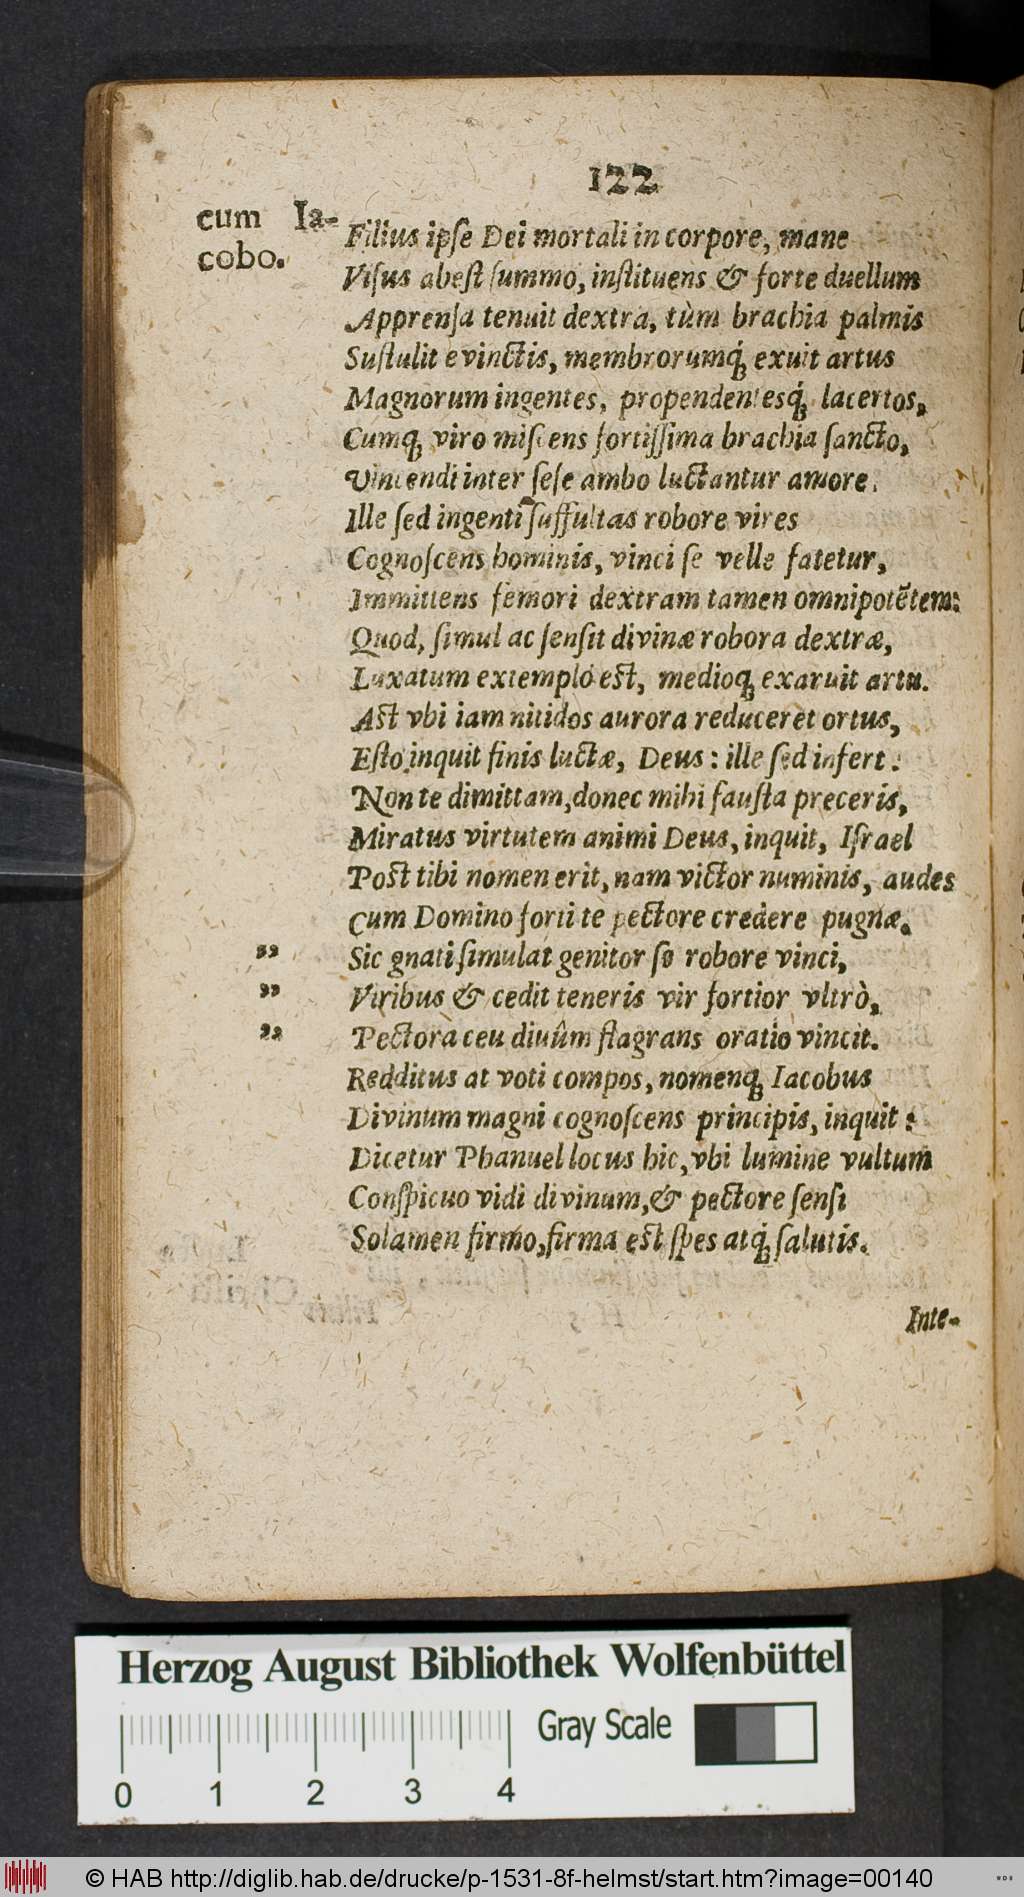 122
cum Ia-
cobo.
Filius ipſe Dei mortali in corpore, mane
Viſus abeſt ſummo, inſtituens & forte duellum
Apprenſa tenuit dextra, tùm brachia palmis
Suſtulit evinctis, membrorumq́; exuit artus
Magnorum ingentes, propendentesq́; lacertos,
Cumq; viro miſcens fortiſſima brachia ſancto,
Vincendi inter ſeſe ambo luctantur amore.
Ille ſed ingenti ſuffultas robore vires
Cognoſcens hominis, vinci ſe velle fatetur,
Immittens femori dextram tamen omnipotẽtem:
Quod, ſimul ac ſenſit divinæ robora dextræ,
Luxatum extemplò eſt, medioq; exaruit artu.
Aſt vbi iam nitidos aurora reduceret ortus,
Eſto inquit finis luctæ, Deus: ille ſed infert:
Non te dimittam, donec mihi fauſta preceris,
Miratus virtutem animi Deus, inquit, Iſrael
Poſt tibi nomen erit, nam victor numinis, audes
Cum Domino forti te pectore credere pugnæ.
„ Sic gnati ſimulat genitor ſe robore vinci,
„ Viribus & cedit teneris vir fortior vltrò,
„ Pectora ceu diuûm flagrans oratio vincit.
Redditus at voti compos, nomenq; Iacobus
Divinum magni cognoſcens principis, inquit:
Dicetur Phanuel locus hic, vbi lumine vultum
Conſpicuo vidi divinum, & pectore ſenſi
Solamen firmo, firma eſt ſpes atq́; ſalutis.
Inte-
Herzog August Bibliothek Wolfenbüttel
Gray Scale
0 1 2 3 4
© HAB http://diglib.hab.de/drucke/p-1531-8f-helmst/start.htm?image=00140